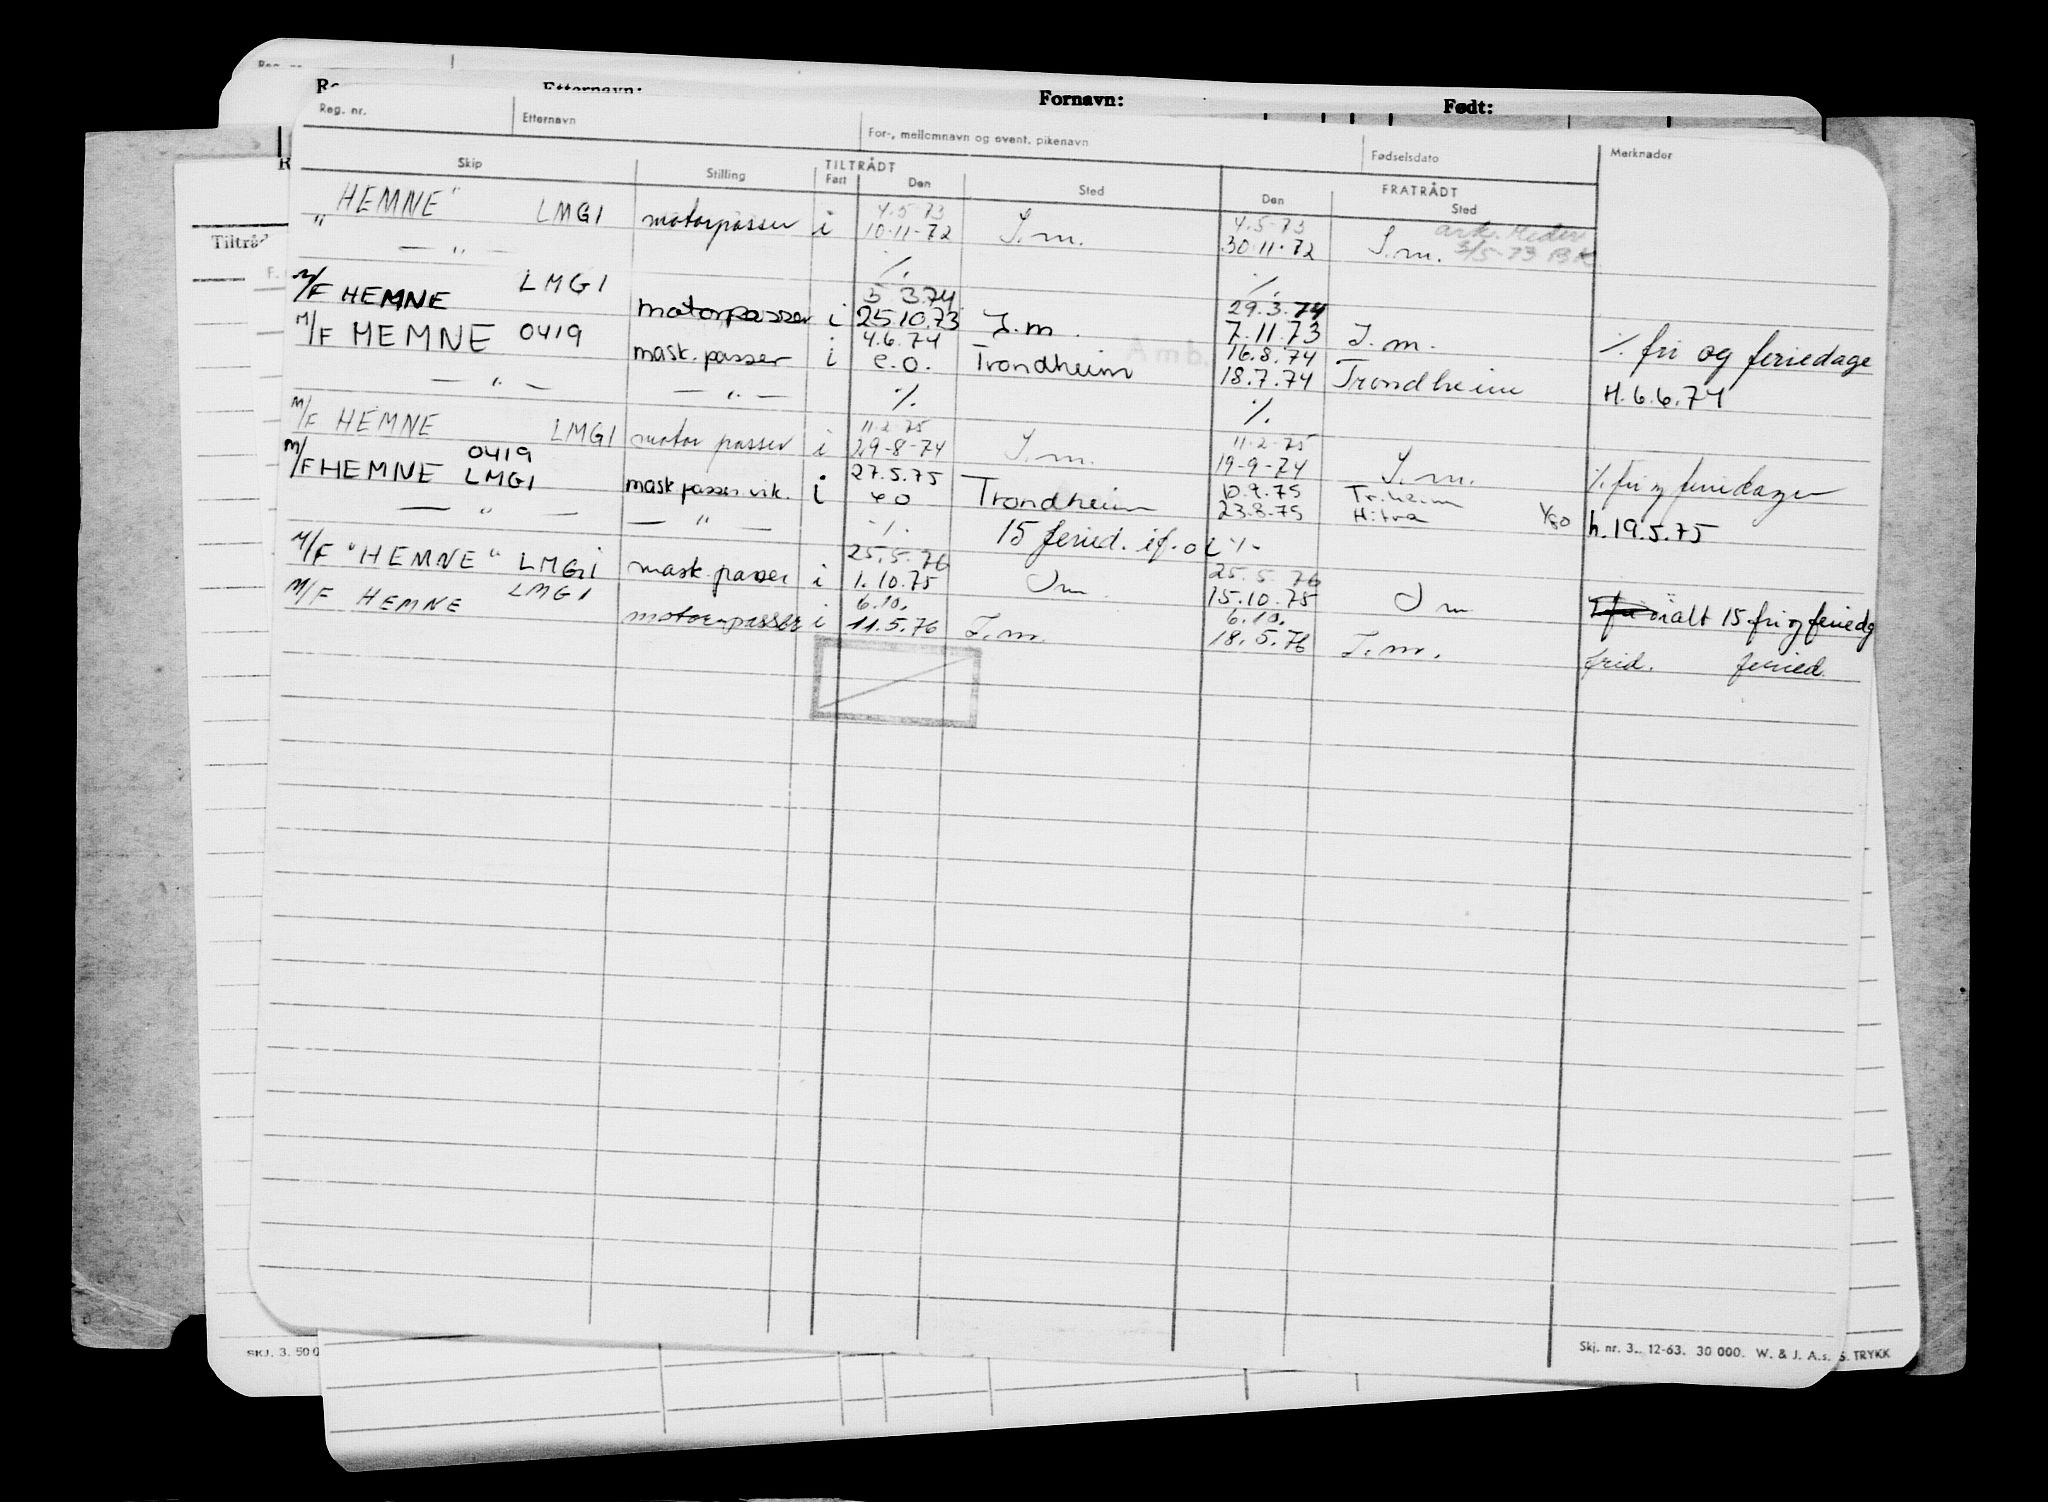 Reg. nr.
Etternavn:
Fornavn:
Født:
Reg. nr. Etternavn For-, mellomnavn og event. pikenavn Fødselsdato Merknader
Skip Stilling TILTRÅDT FRATRÅDT
Fart Den Sted Den Sted
4.5-73 4.5-73
"HEMNE" LMGI motorpasser i 10-11-72 I.m. 30-11-72 I.m. 3/5-73 BK
— " — % %
5 3.74 29.3.74
M/F HEMNE LMGI motorpasser i 25.10.73 I.m. 7.11.73 I.m. % fri og feriedage
4.6.74 16.8.74
M/F HEMNE 0419 mask.passer i e.o. Trondheim 18.7.74 Trondheim H.6.6.74
— " — — " — % %
11.2.75 11.2-75
M/F HEMNE LMGI motorpasser i 29-8-74 I.m. 19-9-74 I.m. % fri og feriedager
0419 27.5.75 10.9.75 Tr.heim
M/F HEMNE LMGI mask passer vik. i eo Trondheim 23.8.75 Hitra 1/80 h.19.5.75
— " — — " — % 15 feried. if. o %
25.5.76 25.5 76
M/F "HEMNE" LMGI mask.passer i 1.10.75 I m 15.10.75 I m ialt 15 fri og feriedg
6.10. 6.10.
M/F HEMNE LMGI motorpasser i 11.5.76 I.m. 18.5.76 I.m. frid. feried.
Tiltråd
F.
Amb.
SKJ. 3. 50 0
Skj. nr. 3. 12-63. 30 000. W. & J. A.s.
S. TRYKK